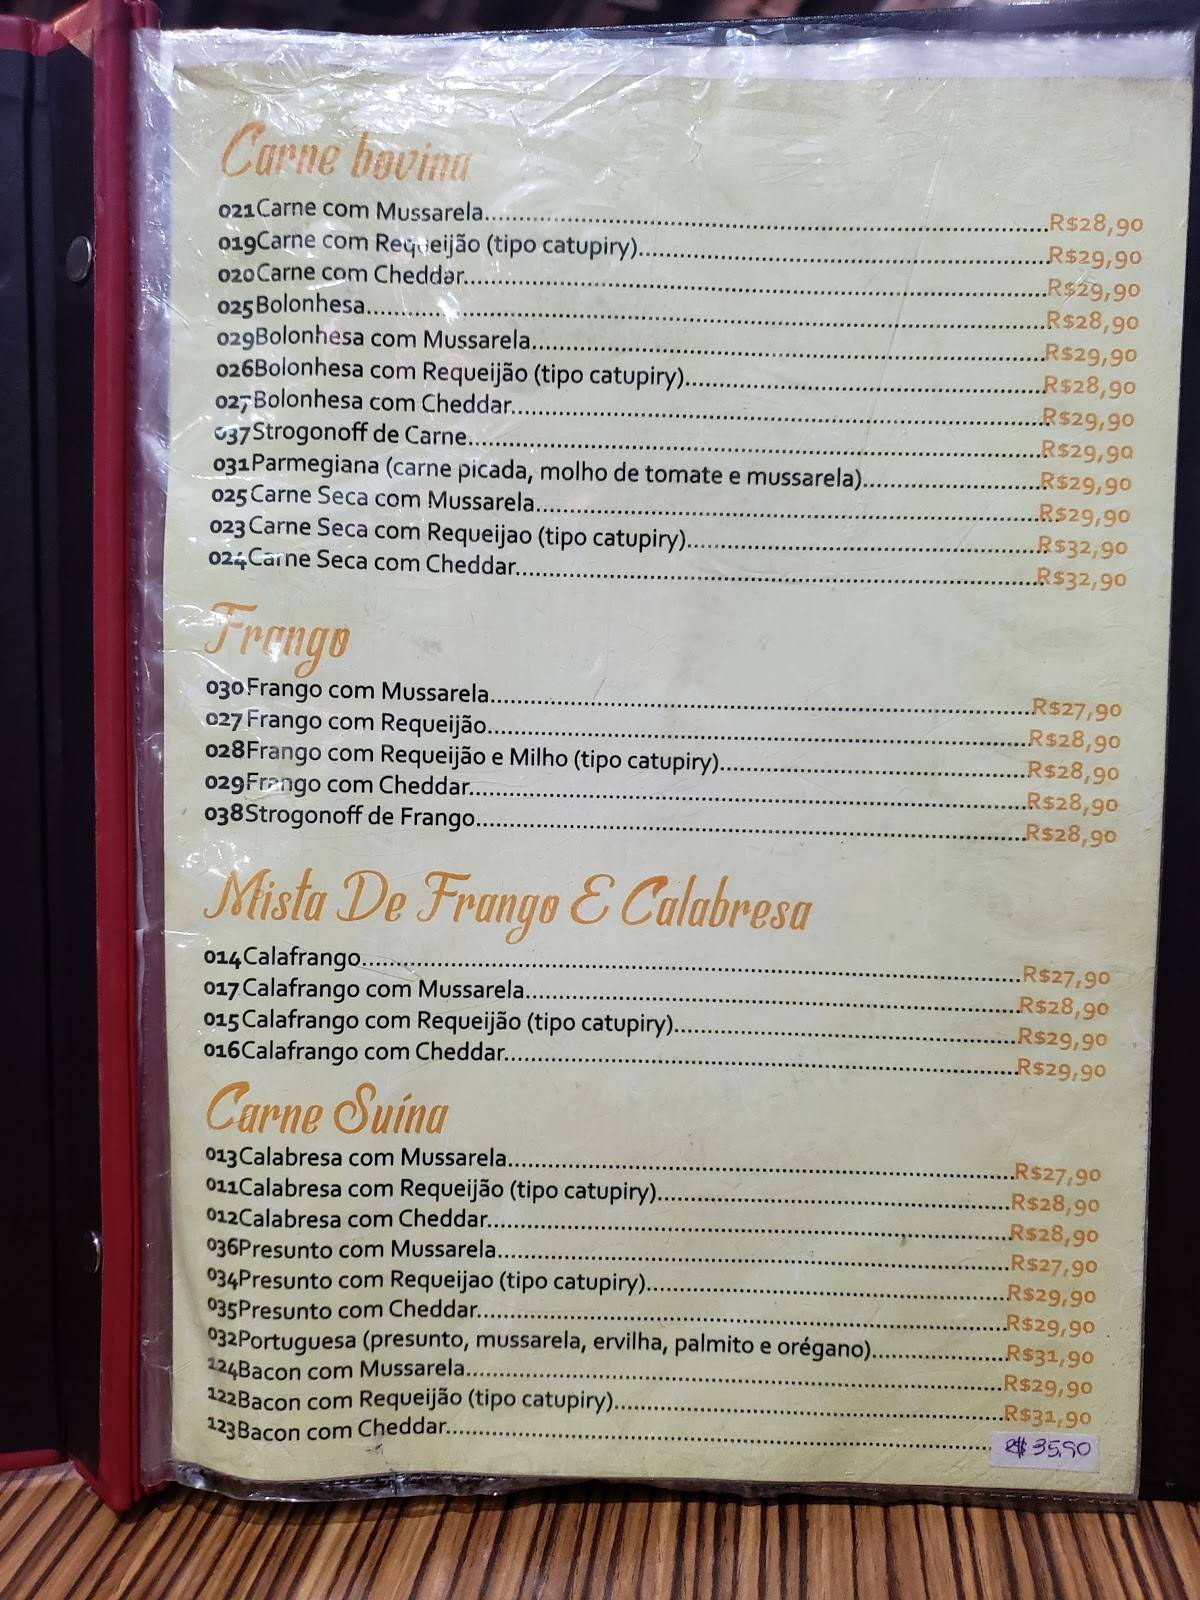 Carne bovina
021 Carne com Mussarela..........R$28,90
019 Carne com Requeijão (tipo catupiry)..........R$29,90
020 Carne com Cheddar..........R$29,90
025 Bolonhesa..........R$28,90
029 Bolonhesa com Mussarela..........R$29,90
026 Bolonhesa com Requeijão (tipo catupiry)..........R$28,90
027 Bolonhesa com Cheddar..........R$29,90
037 Strogonoff de Carne..........R$29,90
031 Parmegiana (carne picada, molho de tomate e mussarela)..........R$29,90
025 Carne Seca com Mussarela..........R$29,90
023 Carne Seca com Requeijao (tipo catupiry)..........R$32,90
024 Carne Seca com Cheddar..........R$32,90
Frango
030 Frango com Mussarela..........R$27,90
027 Frango com Requeijão..........R$28,90
028 Frango com Requeijão e Milho (tipo catupiry)..........R$28,90
029 Frango com Cheddar..........R$28,90
038 Strogonoff de Frango..........R$28,90
Mista De Frango E Calabresa
014 Calafrango..........R$27,90
017 Calafrango com Mussarela..........R$28,90
015 Calafrango com Requeijão (tipo catupiry)..........R$29,90
016 Calafrango com Cheddar..........R$29,90
Carne Suína
013 Calabresa com Mussarela..........R$27,90
011 Calabresa com Requeijão (tipo catupiry)..........R$28,90
012 Calabresa com Cheddar..........R$28,90
036 Presunto com Mussarela..........R$27,90
034 Presunto com Requeijao (tipo catupiry)..........R$29,90
035 Presunto com Cheddar..........R$29,90
032 Portuguesa (presunto, mussarela, ervilha, palmito e orégano)..........R$31,90
124 Bacon com Mussarela..........R$29,90
122 Bacon com Requeijão (tipo catupiry)..........R$31,90
123 Bacon com Cheddar..........R$ 35,90